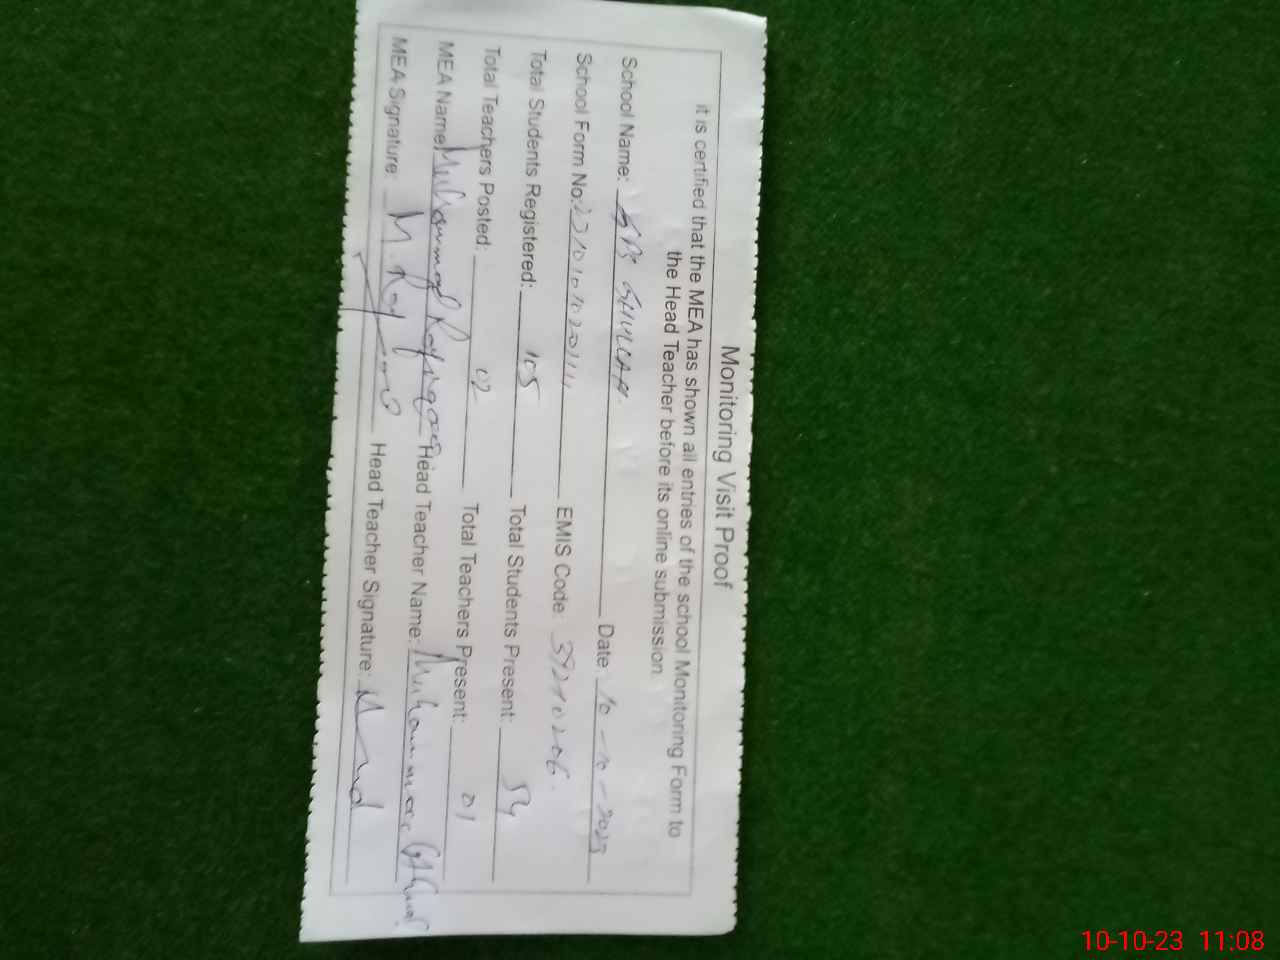 Monitoring Visit Proof
it is certified that the MEA has shown all entries of the school Monitoring Form to
the Head Teacher before its online submission
School Name: Date: 10-10-2023
School Form No: EMIS Code: 39210206
Total Students Registered: 105 Total Students Present: 54
Total Teachers Posted: 02 Total Teachers Present: 01
MEA Name: Muhammad Head Teacher Name: Muhammad
MEA Signature: Head Teacher Signature:
10-10-23 11:08